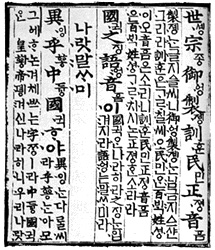 世솅宗종御엉製졩訓훈民민正졍音ᅙᅳᆷ
製졩는글지ᅀᅳᆯ씨니御엉製졩는님금지ᅀᅳ샨
그리라訓훈은ᄀᆞᄅᆞ칠씨오民민ᄋᆞᆫ百ᄇᆡᆨ姓셩
이오音ᅙᅳᆷ은소리니訓훈民민正졍音ᅙᅳᆷ은百ᄇᆡᆨ
姓셩ᄀᆞᄅᆞ치시논正졍ᄒᆞᆫ소리라
國귁之징語ᅌᅥᆼ音ᅙᅳᆷ이
國귁ᄋᆞᆫ나라히라之징ᄂᆞᆫ입
겨지라語ᅌᅥᆼ는말ᄊᆞ미라
나랏말ᄊᆞ미
異잉乎ᅘᅩᆼ中듀ᇰ國귁ᄒᆞ야
異잉ᄂᆞᆫ다ᄅᆞᆯ씨
라乎ᅘᅩᆼᄂᆞᆫ아모
그ᅌᅦᄒᆞ논겨체ᄡᅳ는字ᄍᆞᆼㅣ라中듀ᇰ國귁ᄋᆞᆫ
皇ᅘᅪᇰ帝뎽겨신나라히니우리나랏